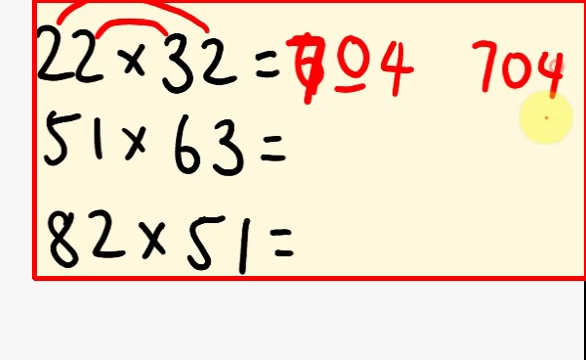 22×32=704 704
51×63=
82×51=